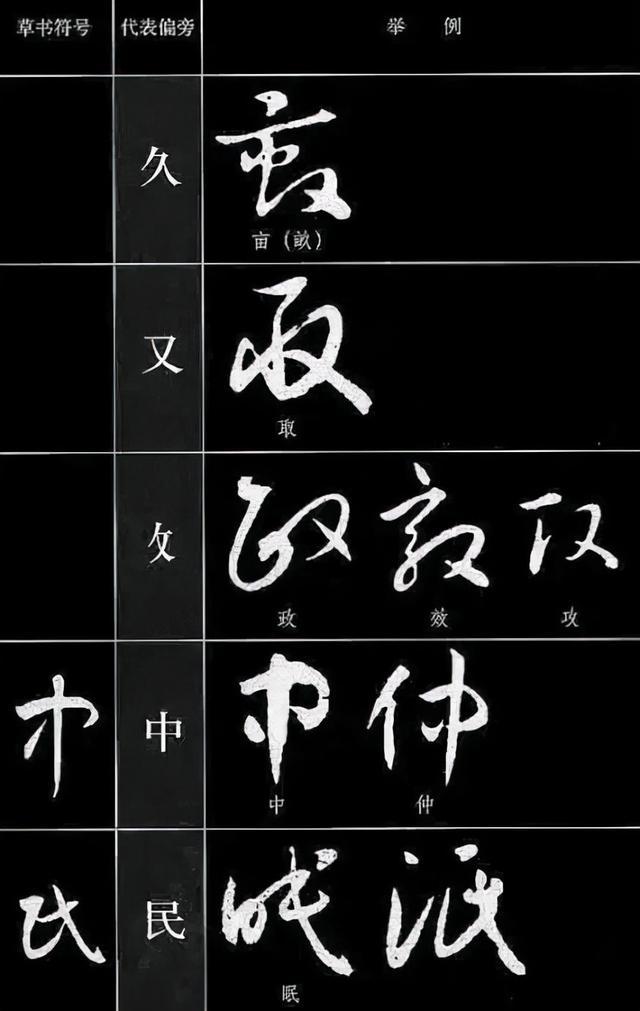 草书符号 代表偏旁 举例
久
亩（畝）
又
取
攵
政 效 攻
中
中 仲
民
眠